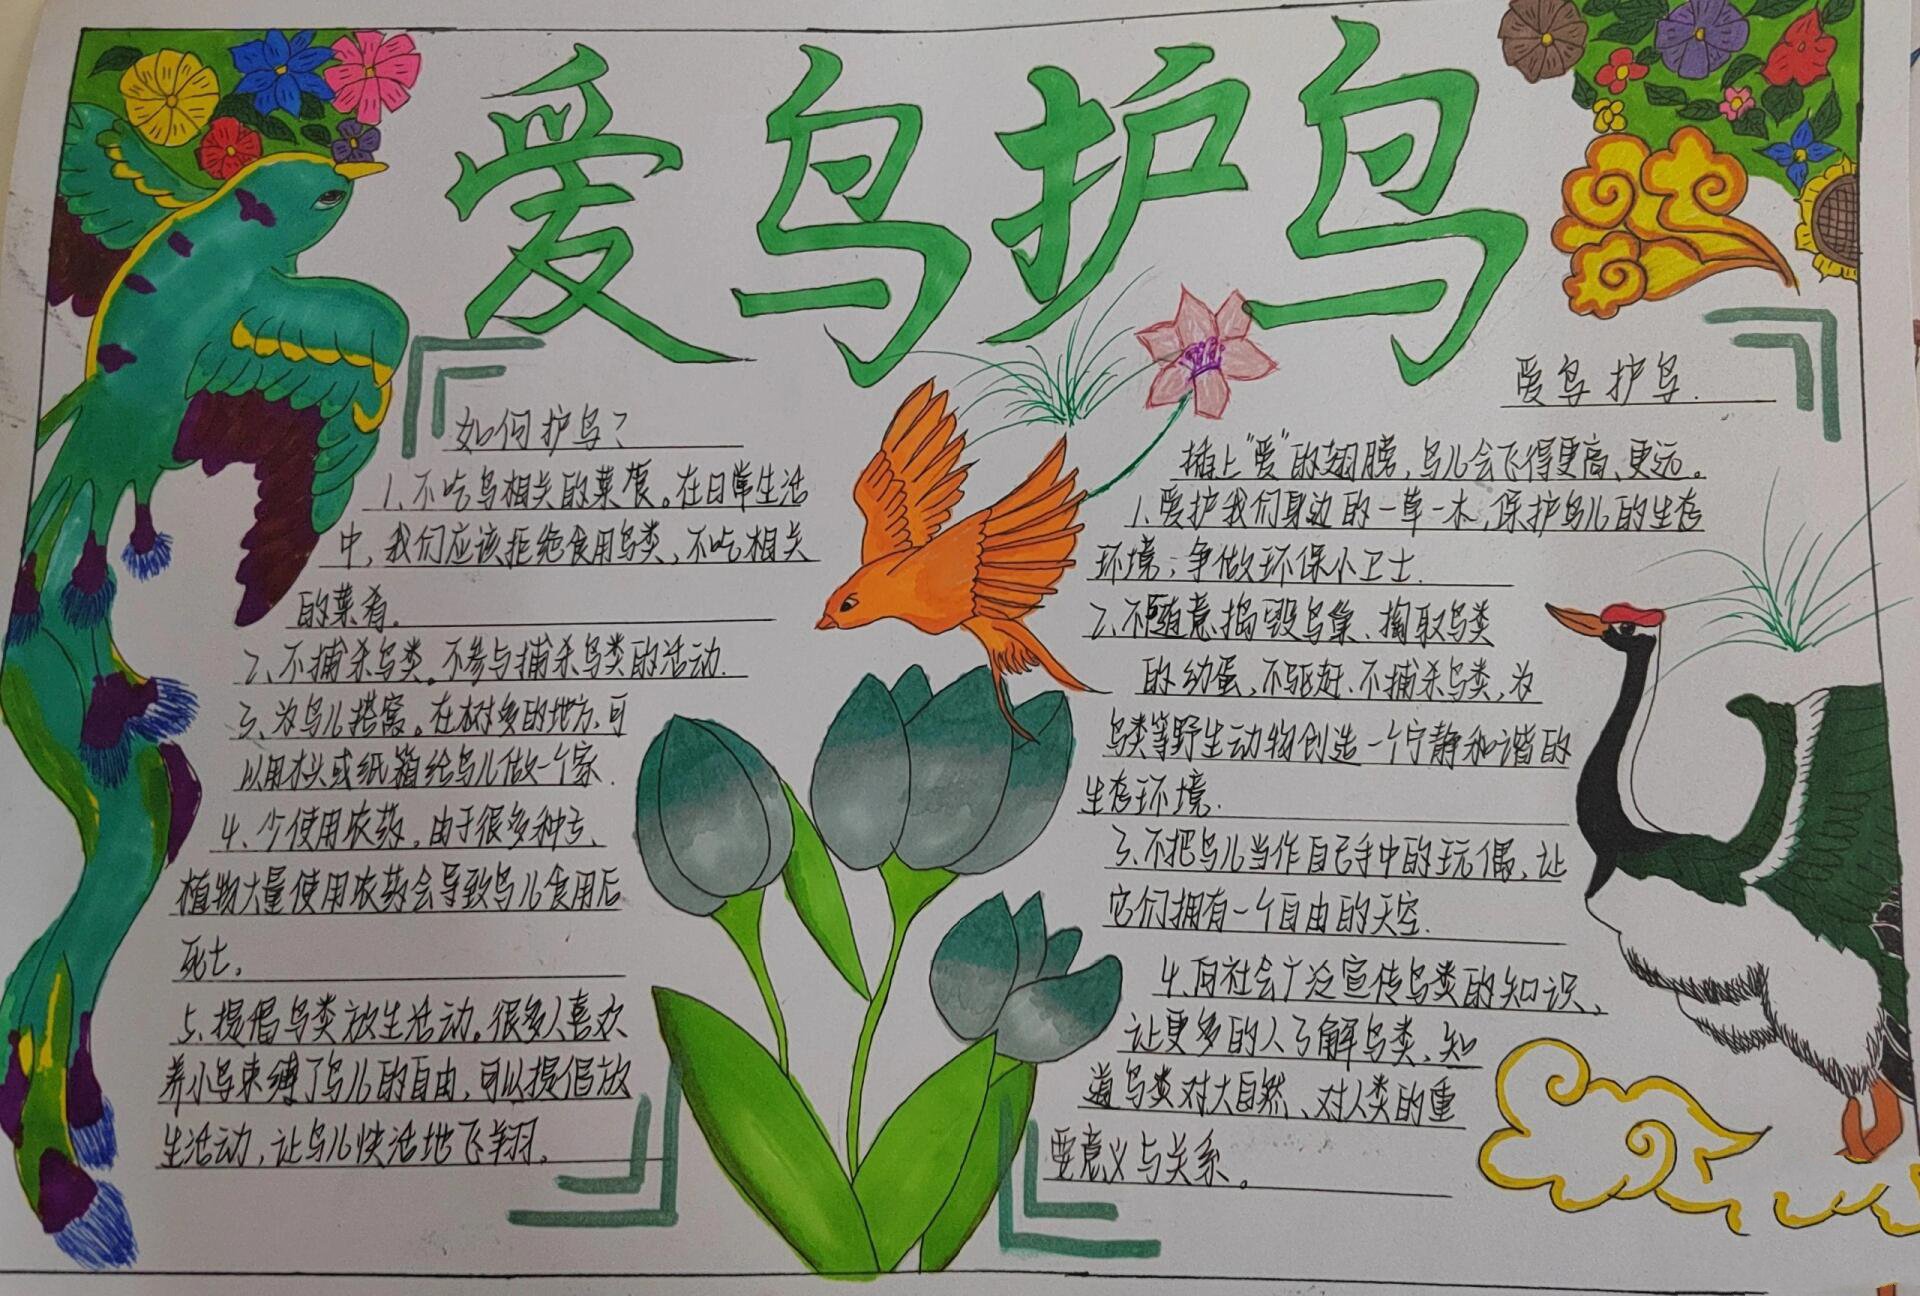 爱鸟护鸟
如何护鸟?
1、不吃鸟相关的菜餐。在日常生活
中，我们应该拒绝食用鸟类，不吃相关
的菜肴。
2、不捕杀鸟类。不参与捕杀鸟类的活动.
3、为鸟儿搭窝。在树多的地方、可
以用木头或纸箱给鸟儿做一个家.
4、少使用农药。由于很多种
植物大量使用农药会导致鸟儿食用后
死亡。
5、提倡鸟类放生活动。很多人喜欢
养小鸟束缚了鸟儿的自由，可以提倡放
生活动，让鸟儿快活地飞翔。
爱鸟护鸟.
插上"爱"的翅膀，鸟儿会飞得更高、更远。
1、爱护我们身边的一草一木，保护鸟儿的生态
环境；争做环保小卫士.
2、不随意捣毁鸟巢、掏取鸟类
的幼蛋，不驱赶、不捕杀鸟类，为
鸟类等野生动物创造一个宁静和谐的
生态环境.
3、不把鸟儿当作自己手中的玩偶，让
它们拥有一个自由的天空.
4、向社会广泛宣传鸟类的知识、
让更多的人了解鸟类、知
道鸟类对大自然、对人类的重
要意义与关系。